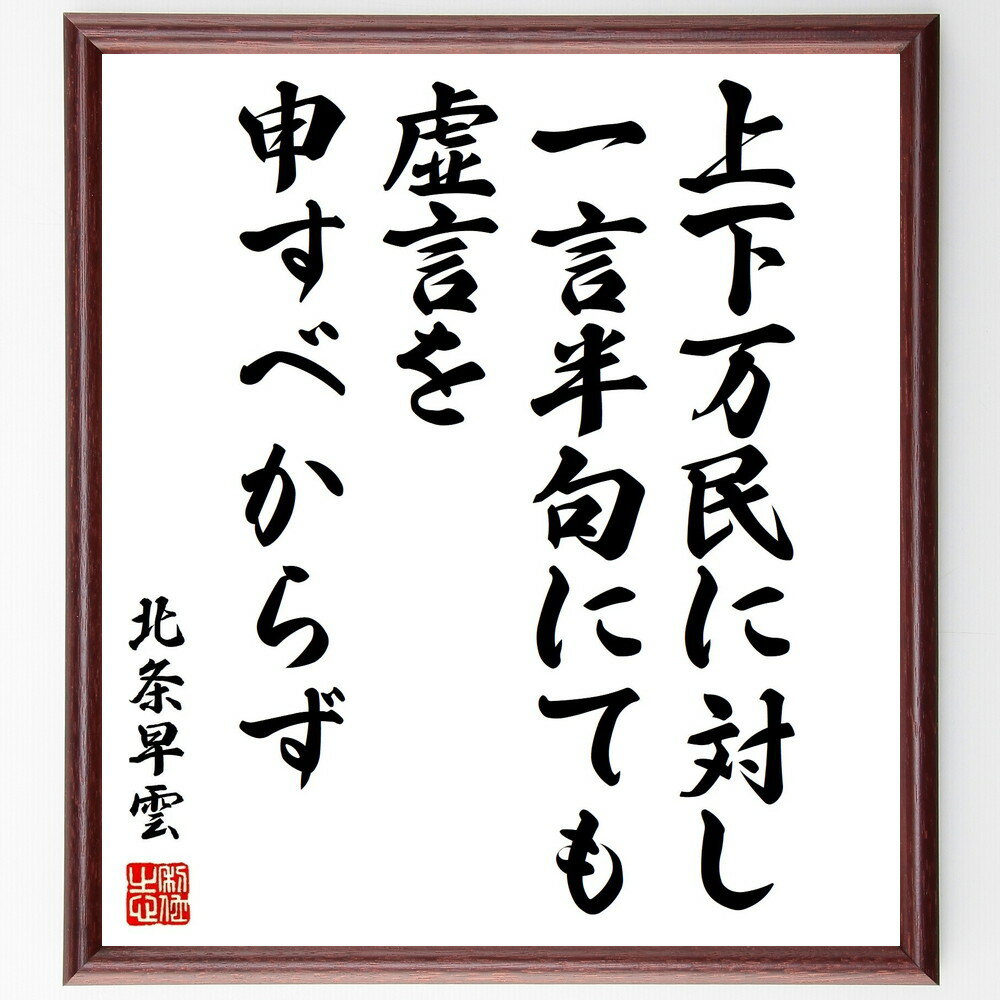 上下万民に対し
一言半句にても
虚言を
申すべからず
北条早雲